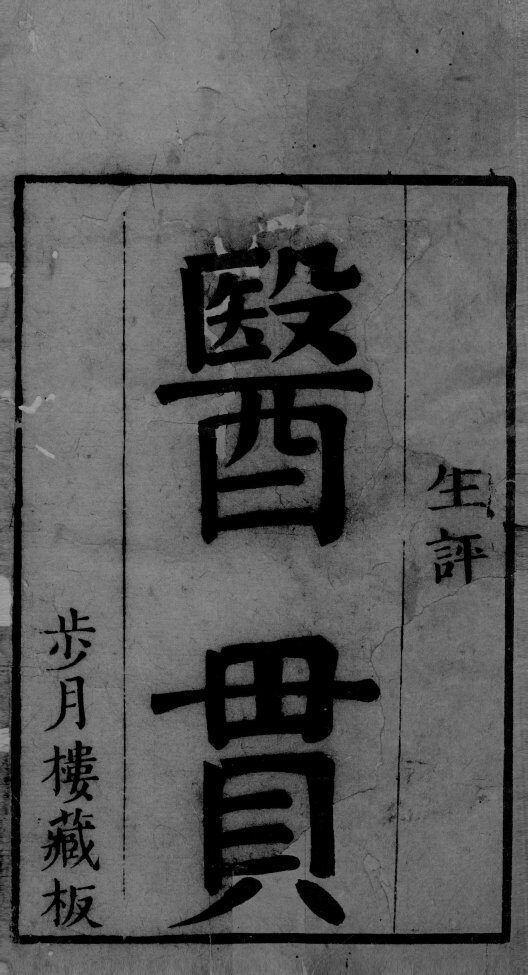 生評
醫貫
步月樓藏板